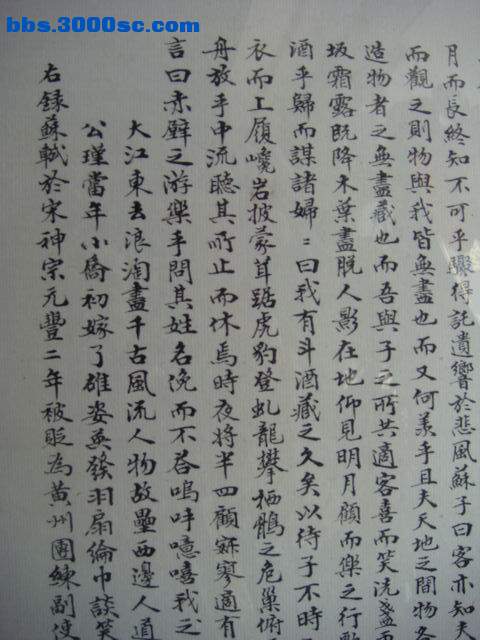 bbs.3000sc.com
月而長終知不可乎驟得託遺響於悲風蘇子曰客亦知夫
而觀之則物與我皆無盡也而又何羨乎且夫天地之間物各
造物者之無盡藏也而吾與子之所共適客喜而笑洗盞
坂霜露既降木葉盡脫人影在地仰見明月顧而樂之行歌
酒乎歸而謀諸婦〻曰我有斗酒藏之久矣以待子不時
衣而上履巉岩披蒙茸踞虎豹登虬龍攀栖鶻之危巢俯
舟放乎中流聽其所止而休焉時夜將半四顧寂寥適有
言曰赤壁之游樂乎問其姓名俛而不答嗚呼噫嘻我之
大江東去浪淘盡千古風流人物故壘西邊人道
公瑾當年小喬初嫁了雄姿英發羽扇綸巾談笑
右録蘇軾於宋神宗元豐二年被貶為黃州團練副使